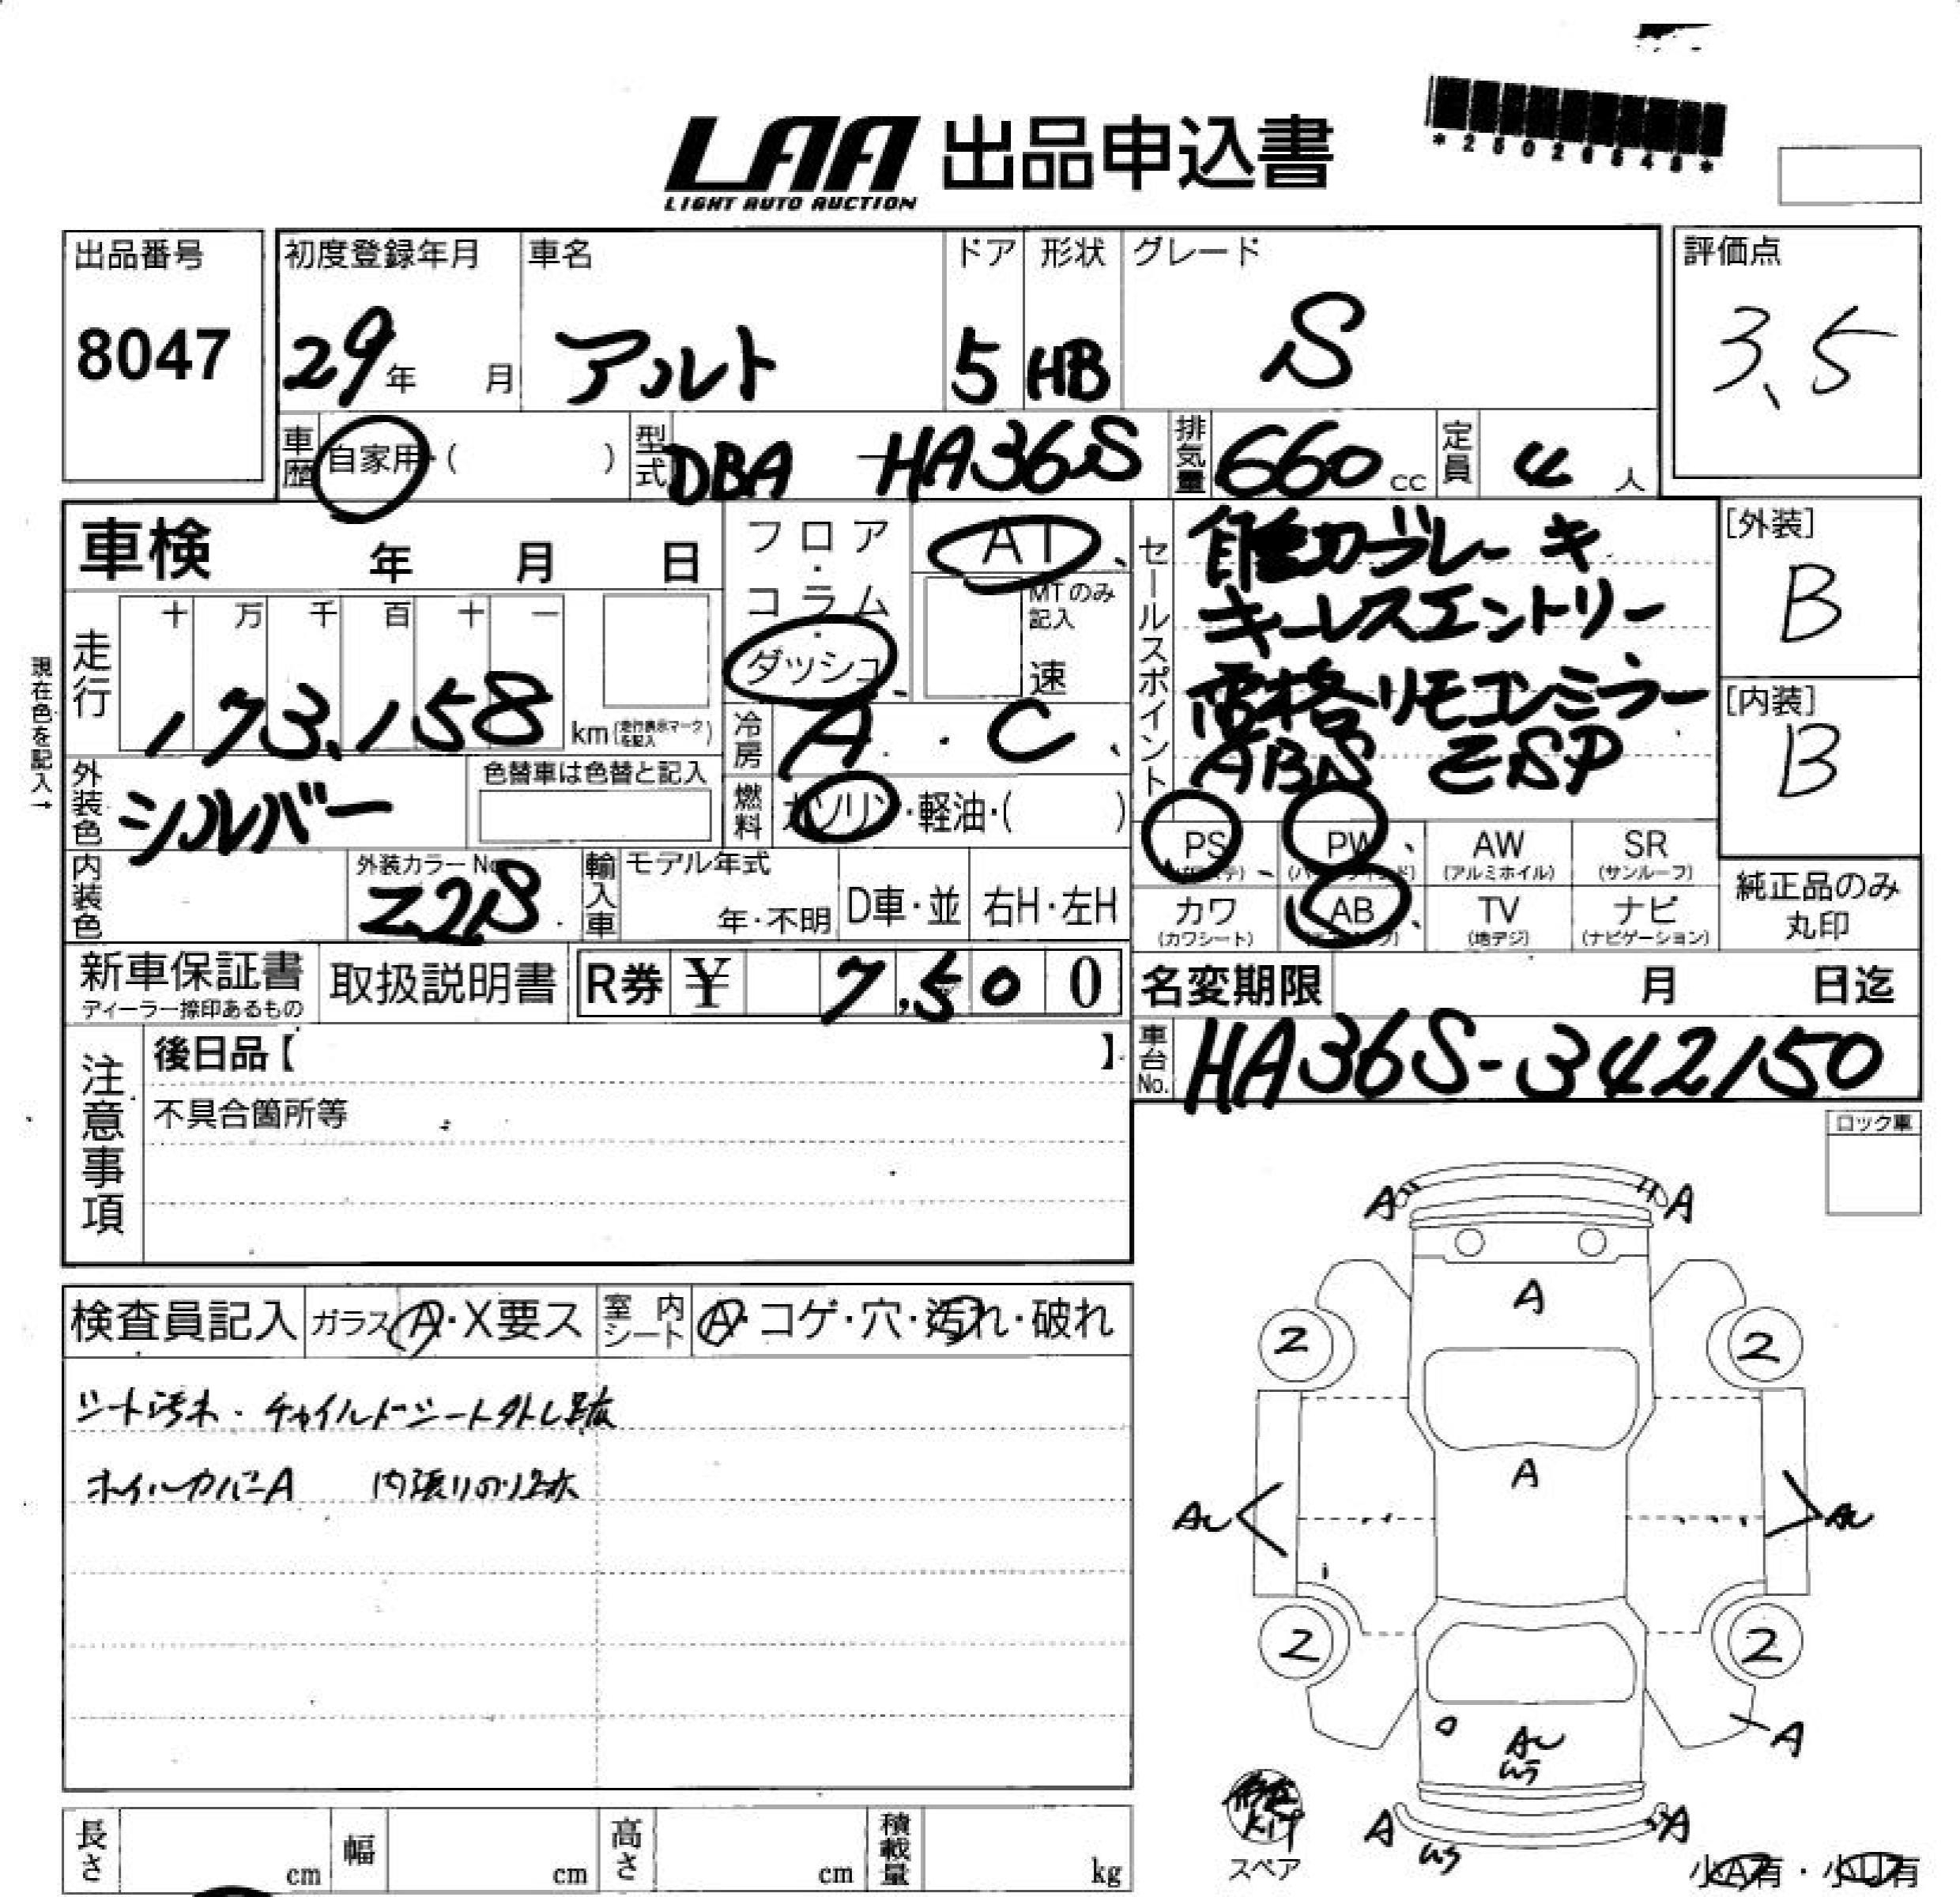 LAA 出品申込書
LIGHT AUTO AUCTION
出品番号
8047
初度登録年月
29年 月
車名
アルト
ドア
5
形状
HB
グレード
S
評価点
3.5
車歴 自家用・( )
型式 DBA-HA36S
排気量 660cc
定員 4人
車検 年 月 日
フロア・コラム・ダッシュ
AT
MTのみ記入
速
セールスポイント
自動ブレーキ
キーレスエントリー
電格リモコンミラー
ABS ESP
[外装]
B
[内装]
B
現在色を記入→
走行 十 万 千 百 十 一
173,158 km(走行表示マークを記入)
冷房 A・C
外装色 シルバー
色替車は色替と記入
燃料 ガソリン・軽油・( )
PS PW AW (アルミホイル) SR (サンルーフ)
カワ (カワシート) AB TV (地デジ) ナビ (ナビゲーション)
純正品のみ丸印
内装色
外装カラーNo. Z2S
輸入車 モデル年式 年・不明 D車・並 右H・左H
新車保証書
ディーラー捺印あるもの
取扱説明書
R券 ¥ 7,500
名変期限 月 日迄
車台No. HA36S-342150
注意事項
後日品【 】
不具合箇所等
ロック車
検査員記入 ガラス A・X要ス 室内シート A・コゲ・穴・汚れ・破れ
シート汚れ・チャイルドシート外し跡
ホイルカバーA 内張りのり跡
A A
A
2 2
A
AU AU
2 2
AU
A
A A
スペア
小A有・小U有
長さ cm 幅 cm 高さ cm 積載量 kg